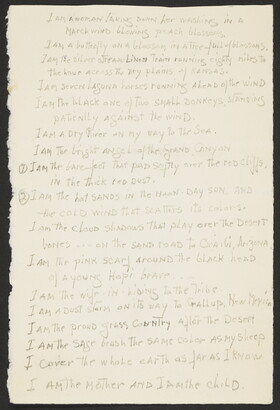 I am a woman taking down her washing in a
March wind blowing peach blossoms.
I am a butterfly on a blossom in a tree full of blossoms,
I am the silver stream lined train running eighty miles to
the hour across the dry plains of Kansas.
I am seven Laguna horses running ahead of the wind
I am the black one of two small donkeys, standing
patiently against the wind.
I am a dry river on my way to the sea.
I am the bright angel of the Grand Canyon
① I am the bare-feet that pad softly over the red cliffs,
in the thick red dust.
② I am the hot sands in the noon-day sun, and
the cold wind that scatters its colors.
I am the cloud shadows that play over the desert
bones --- on the sand road to Oraibi, Arizona,
I am the pink scarf around the black head
of a young Hopi brave ....
I am the wife in to the tribe.
I am a dust storm on its way to Gallup, New Mexico
I am the proud grass country after the desert
I am the sage brush the same color as my sheep
I cover the whole earth as far as I know
I am the Mother and I am the child.